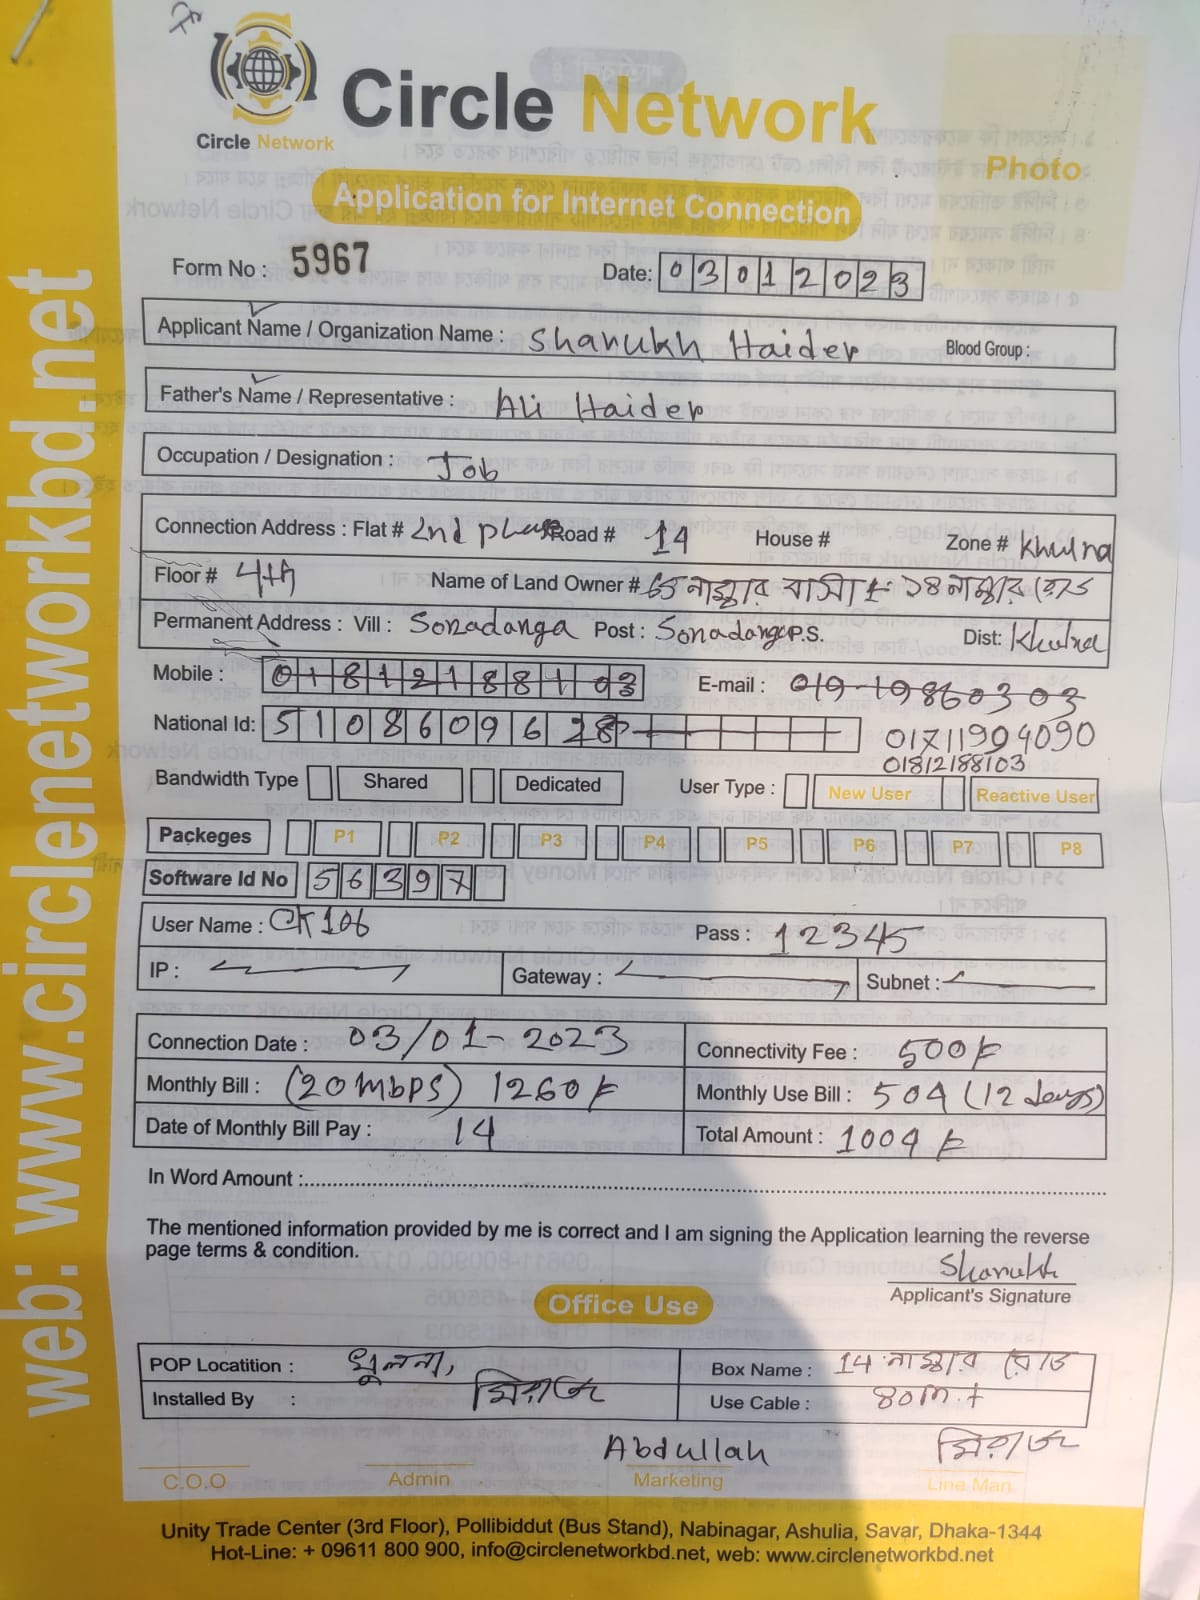 Circle Network
Circle Network
Photo
Application for Internet Connection
Form No : 5967
Date: 03012023
Applicant Name / Organization Name : Sharukh Haider Blood Group :
Father's Name / Representative : Ali Haider
Occupation / Designation : Job
Connection Address : Flat # 2nd phase Road # 14 House # Zone # Khulna
Floor # 4th Name of Land Owner # 65 নাম্বার বাসা ১৪ নাম্বার রোড
Permanent Address : Vill : Sonadanga Post : Sonadanga P.S. Dist: Khulna
Mobile : 01812188103 E-mail : 019-19860303
National Id: 5108609628 01711904090
01812188103
Bandwidth Type Shared Dedicated User Type : New User Reactive User
Packeges P1 P2 P3 P4 P5 P6 P7 P8
Software Id No 56397
User Name : CK106 Pass : 12345
IP : Gateway : Subnet :
Connection Date : 03/01-2023 Connectivity Fee : 500৳
Monthly Bill : (20mbps) 1260৳ Monthly Use Bill : 504 (12 days)
Date of Monthly Bill Pay : 14 Total Amount : 1004৳
In Word Amount :
The mentioned information provided by me is correct and I am signing the Application learning the reverse
page terms & condition.
Sharukh
Applicant's Signature
Office Use
POP Locatition : খুলনা, Box Name : 14 নাম্বার রোড
Installed By : মিরাজ Use Cable : 80m.t
Abdullah মিরাজ
C.O.O Admin Marketing Line Man
Unity Trade Center (3rd Floor), Pollibiddut (Bus Stand), Nabinagar, Ashulia, Savar, Dhaka-1344
Hot-Line: + 09611 800 900, info@circlenetworkbd.net, web: www.circlenetworkbd.net
web: www.circlenetworkbd.net